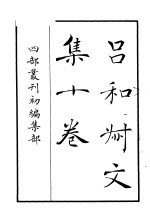 呂和叔文
集十卷
四部叢刊初編集部